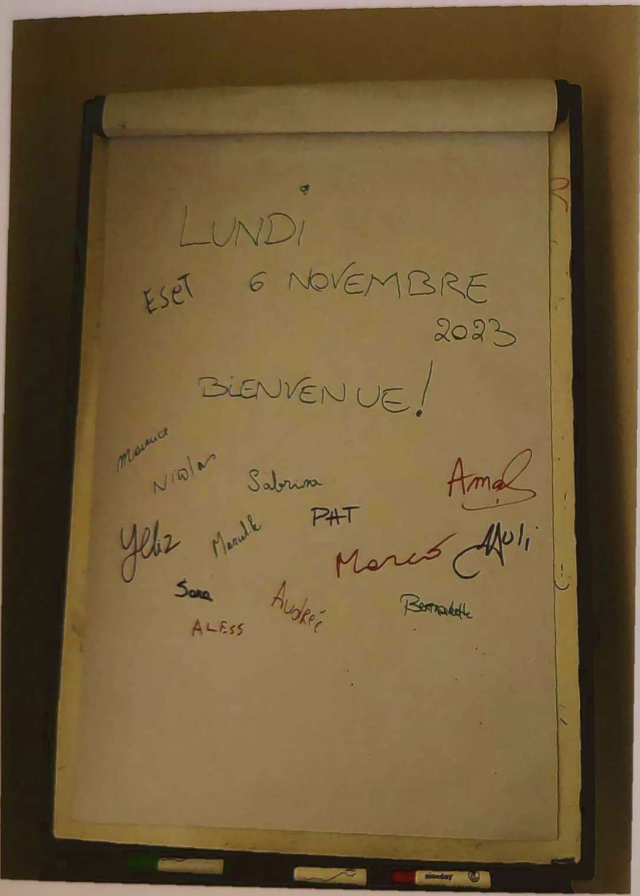 LUNDi
ESET 6 NOVEMBRE
2023
BiENVENUE!
Maurice
Nicolas Sabrina Amal
PAT
Yeliz Marco Juli
Sara Audrée Bernadette
ALESS